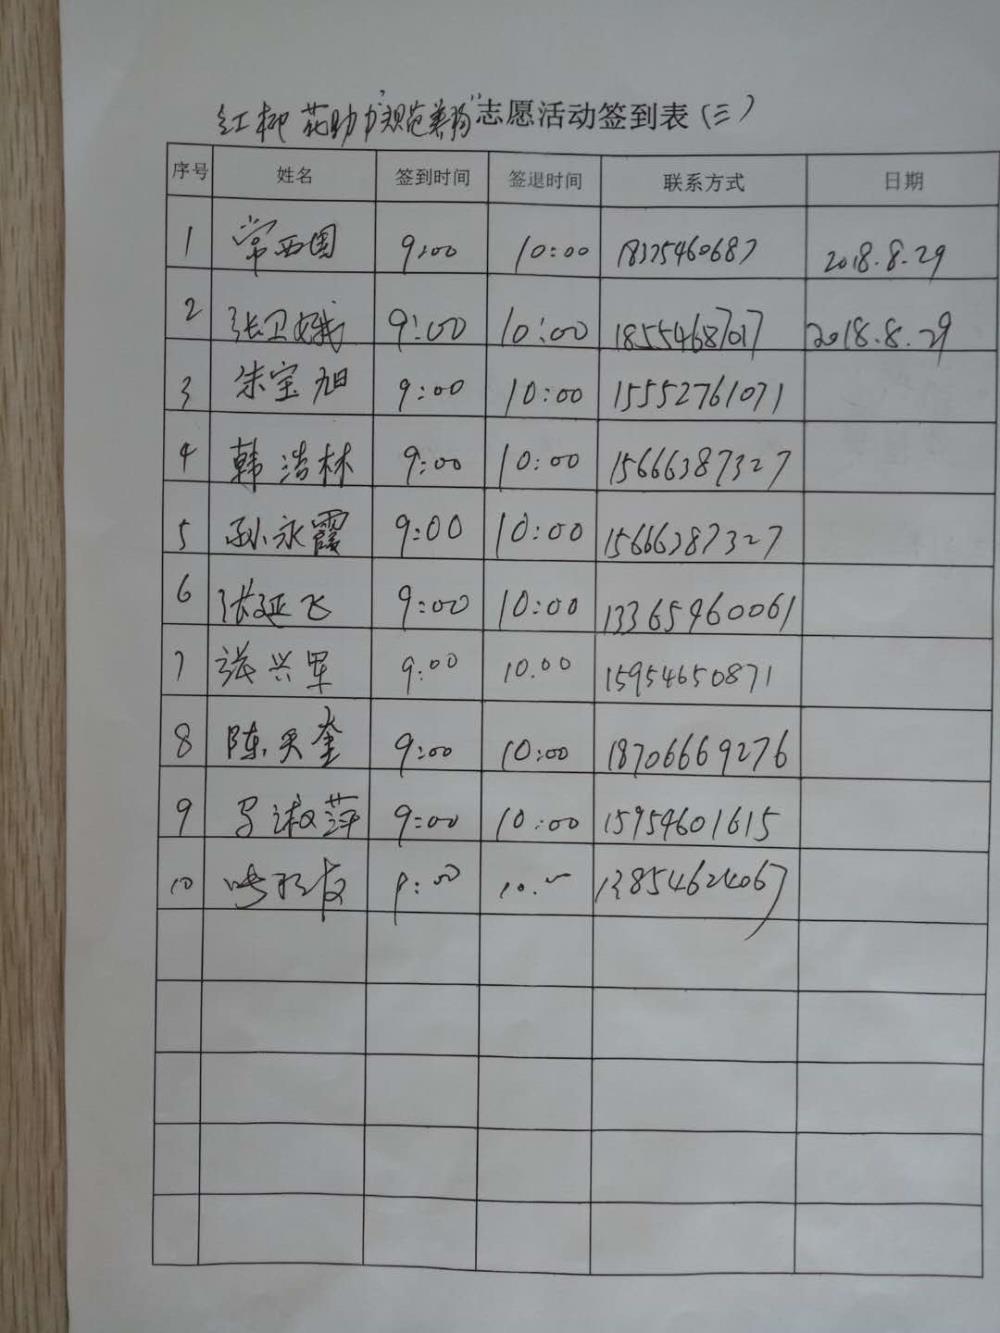 红柳花助力"规范养狗"志愿活动签到表(三)
序号 姓名 签到时间 签退时间 联系方式 日期
1 常西国 9:00 10:00 18375460687 2018.8.29
2 张卫娥 9:00 10:00 18554687017 2018.8.29
3 朱宝旭 9:00 10:00 15552761071
4 韩浩林 9:00 10:00 15666387327
5 孙永霞 9:00 10:00 15666387327
6 张延飞 9:00 10:00 13365460061
7 张兴军 9:00 10.00 15954650871
8 陈奎 9:00 10:00 18706669276
9 马淑萍 9:00 10:00 15954601615
10 9:00 13854624067